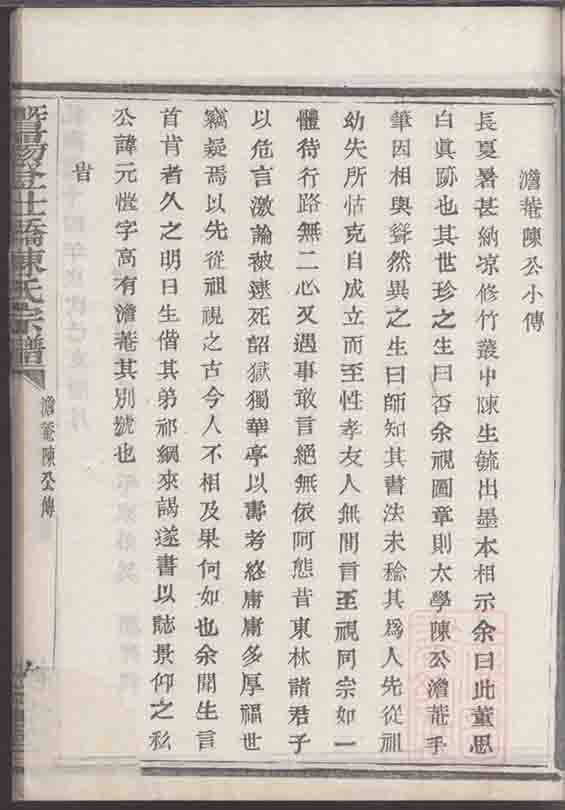 澹菴陳公小傳
長夏暑甚納凉修竹叢中陳生毓出墨本相示余曰此董思
白眞跡也其世珍之生曰否余視圖章則太學陳公澹菴手
筆因相與聳然異之生曰師知其書法未稔其爲人先從祖
幼失所怙克自成立而至性孝友人無間言至視同宗如一
體待行路無二心又遇事敢言絕無依阿態昔東林諸君子
以危言激論被逮死詔獄獨華亭以壽考終庸庸多厚福世
竊疑焉以先從祖視之古今人不相及果何如也余聞生言
首肯者久之明日生偕其弟祁綱來謁遂書以誌景仰之私
公諱元愷字高有澹菴其別號也
旹
暨陽登仕橋陳氏宗譜
澹菴陳公傳